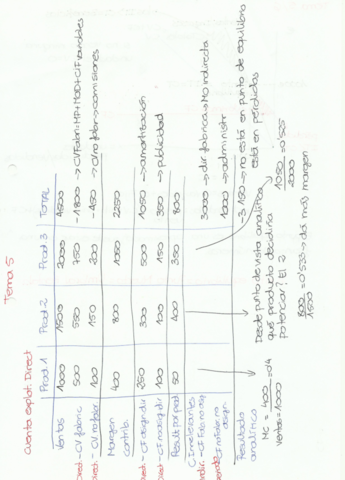 Tema 5
Cuenta explot. Direct
Prod. 1 Prod. 2 Prod. 3 TOTAL
Ventas 1000 1500 2000 4500
- CV fabricantes 500 550 750 - 1800 → CV Fabri = MP + MOD + CIF variables
- CV no fabr 100 150 200 - 450 → CV no fabr → comisiones
Margen contrib. 400 800 1050 2250
- CF asign dir 250 300 500 1050 → amortización
- CF no asig dir 100 100 150 350 → publicidad
Result por prod 50 400 350 800
CI irrelevantes
- CF fab no asig 3000 → dir. fabrica → MO indirecta
CF no fabr. no asign. 1000 → administr
Resultado analítico - 3150 → no está en punto de equilibrio
está en pérdidas
MC = 400 / Ventas = 1000 = 0'4
Desde punto de vista analítico
qué producto decidiría
potenciar? El 2
800 / 1500 = 0'533 → da más margen
1050 / 2000 = 0'525